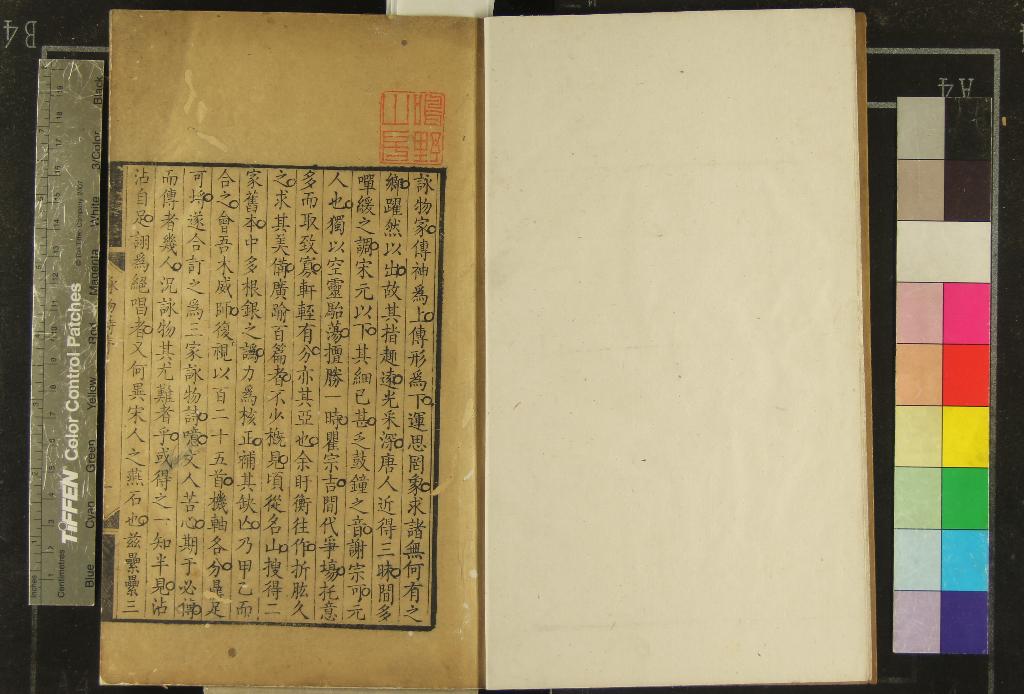 詠物家傳神爲上傳形爲下運思罔象求諸無何有之
鄉躍然以出故其指趣遠光采深唐人近得三昧間多
嘽緩之調宋元以下其細已甚乏鼓鐘之音謝宗可元
人也獨以空靈駘蕩擅勝一時瞿宗吉間代爭場托意
多而取致寡軒輊有分亦其亞也余盱衡往作折肱久
之求其美備廣踰百篇者不少槪見頃從名山搜得二
家舊本中多根銀之譌力爲核正補其缺亡乃甲乙而
合之會吾木威師復視以百二十五首機軸各分鼎足
可埒遂合訂之爲三家詠物詩噫文人苦心期于必傳
而傳者幾人況詠物其尤難者乎或得之一知半見沾
沾自足詡爲絕唱者又何異宋人之燕石也茲纍纍三
詠物詩序
TIFFEN Color Control Patches
© The Tiffen Company, 2007
Inches
Centimetres
Blue
Cyan
Green
Yellow
Red
Magenta
White
3/Color
Black
B4
A4